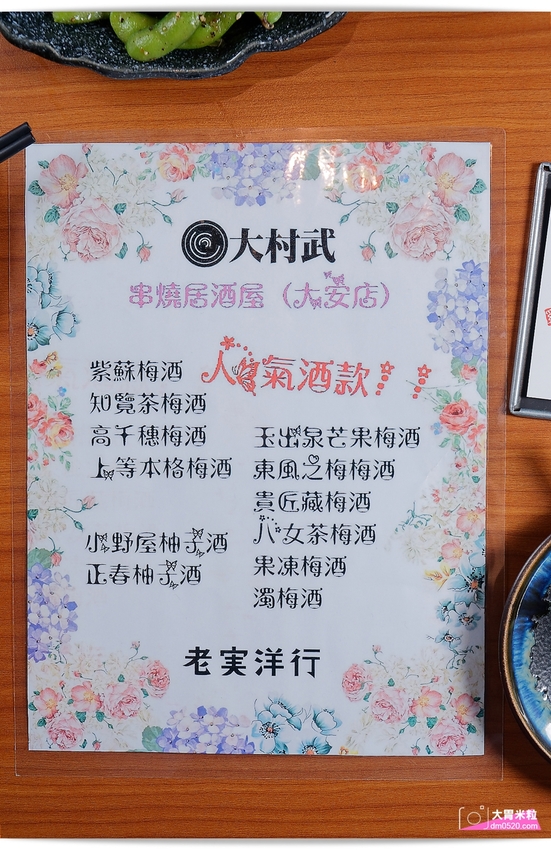 大村武
串燒居酒屋（大安店）
人氣酒款！！
紫蘇梅酒
知覽茶梅酒
高千穗梅酒
上等本格梅酒
小野屋柚子酒
正春柚子酒
玉出泉芒果梅酒
東風之梅梅酒
貴匠藏梅酒
八女茶梅酒
果凍梅酒
濁梅酒
老実洋行
大胃米粒
dm0520.com